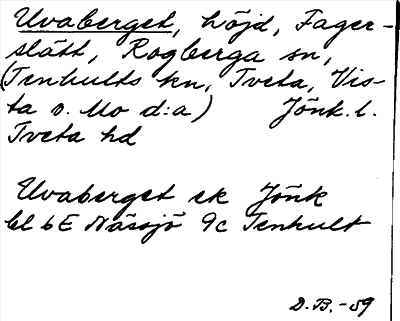 Uvaberget, höjd, Fager-
slätt, Rogberga sn,
(Tenhults kn, Tveta, Vis-
ta o. Mo d:a) Jönk. l.
Tveta hd
Uvaberget ek Jönk
bl 6E Nässjö 9c Tenhult
D.B. -59